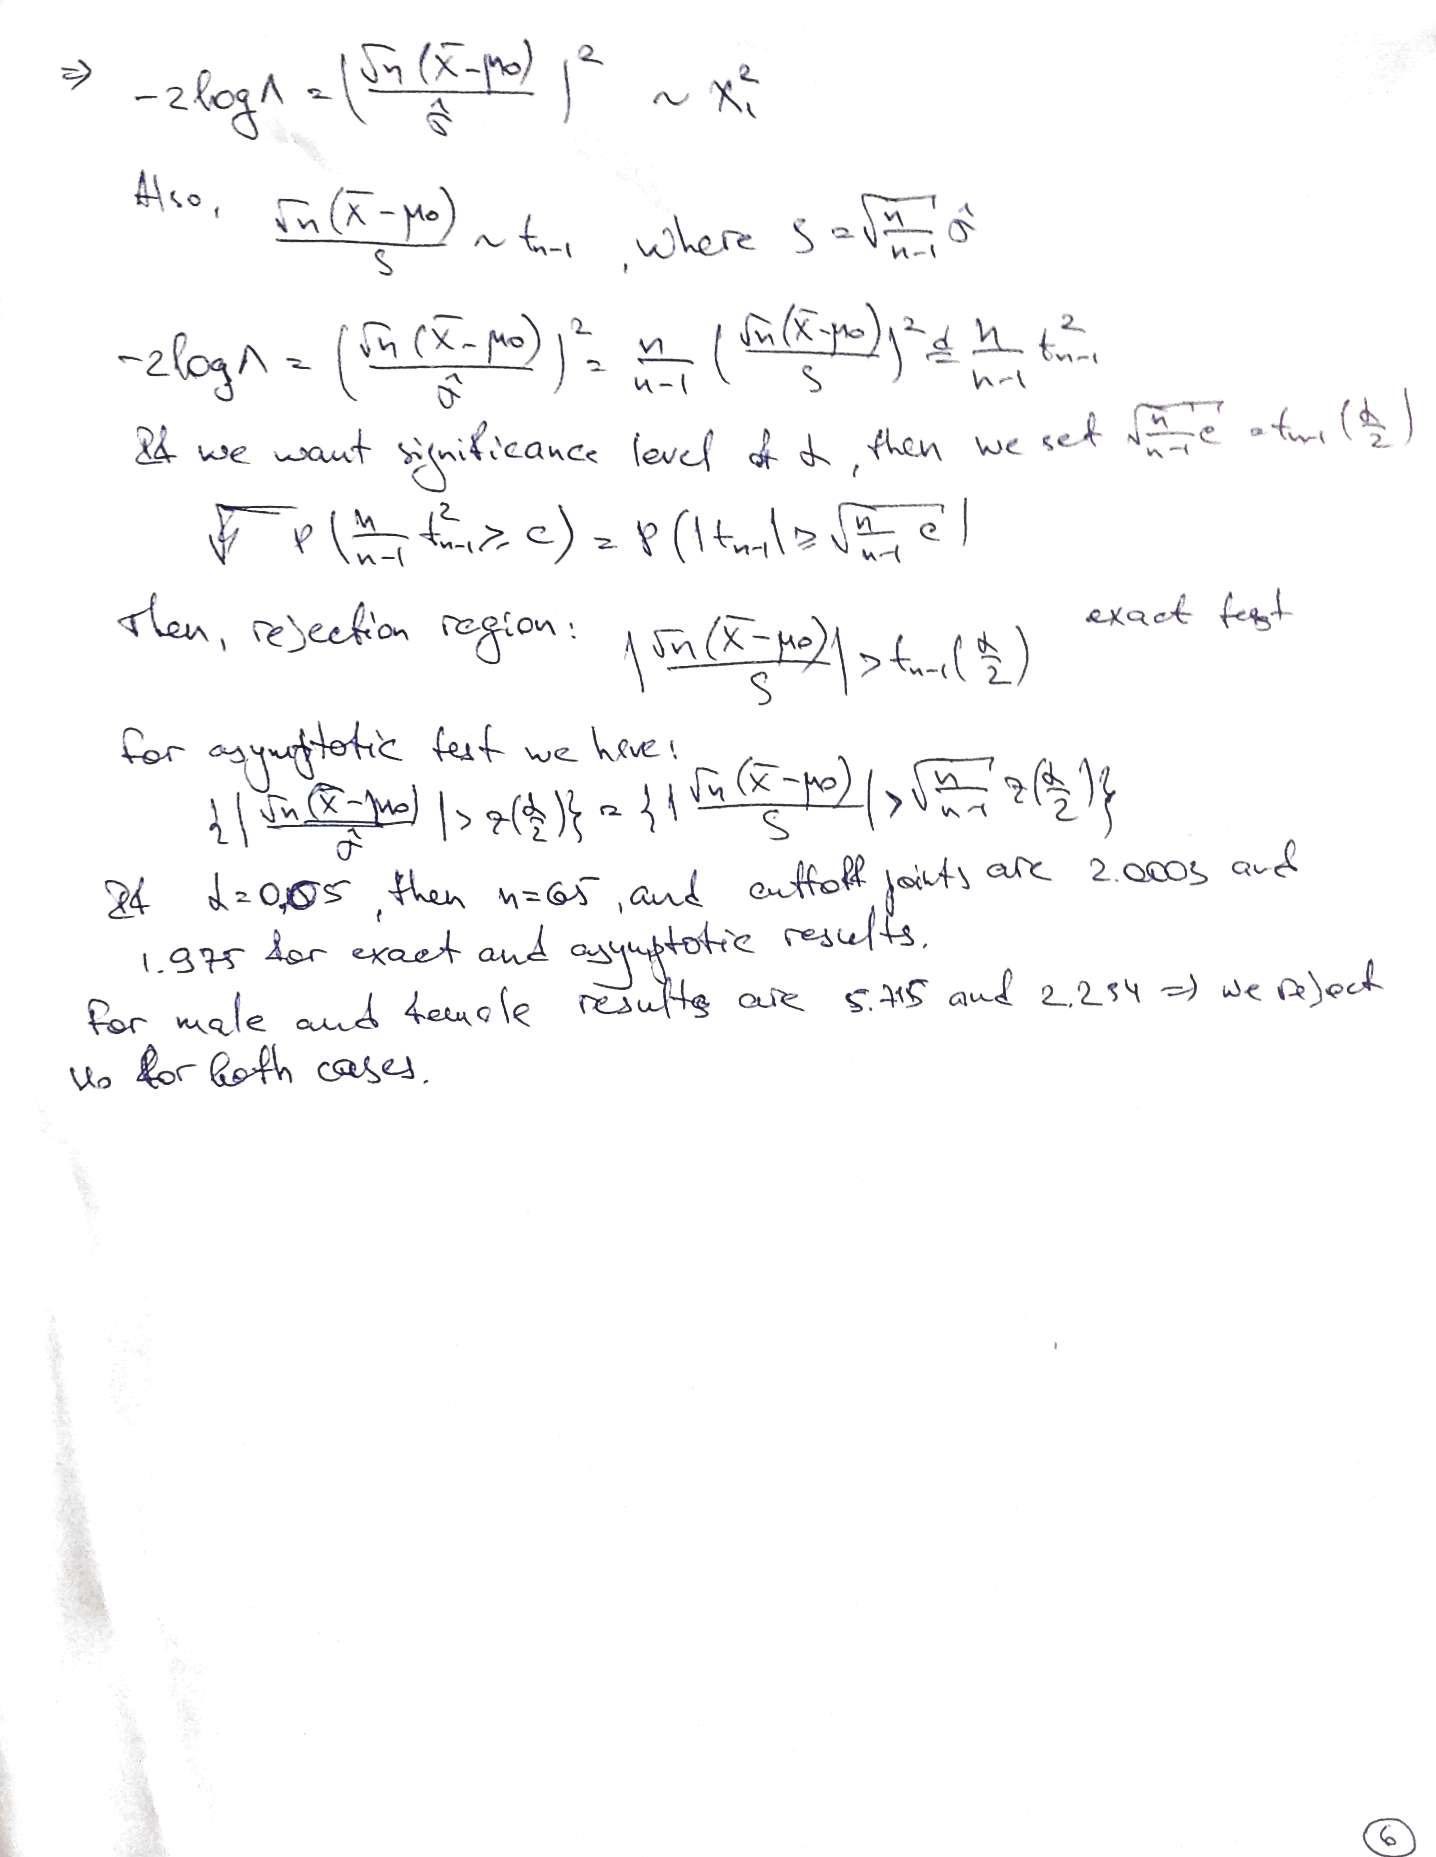 ⇒ -2logΛ = (√n(x̄-μ0)/σ̂)² ~ χ₁²
Also, √n(x̄-μ0)/S ~ tn-1, where S = √(n/(n-1)) σ̂
-2logΛ = (√n(x̄-μ0)/σ̂)² = n/(n-1) (√n(x̄-μ0)/S)² =d n/(n-1) t²n-1
If we want significance level of α, then we set √(n/(n-1) c) = tn-1(α/2)
P(n/(n-1) t²n-1 ≥ c) = P(|tn-1| ≥ √(n/(n-1) c)|
Then, rejection region: |√n(x̄-μ0)/S| > tn-1(α/2) exact test
For asymptotic test we have:
{|√n(x̄-μ0)/σ̂| > z(α/2)} = {|√n(x̄-μ0)/S| > √(n/(n-1)) z(α/2)}
If α=0,05, then n=65, and cuttoff points are 2.0003 and
1.975 for exact and asymptotic results.
For male and female results are 5.715 and 2.234 ⇒ we reject
H0 for both cases.
6